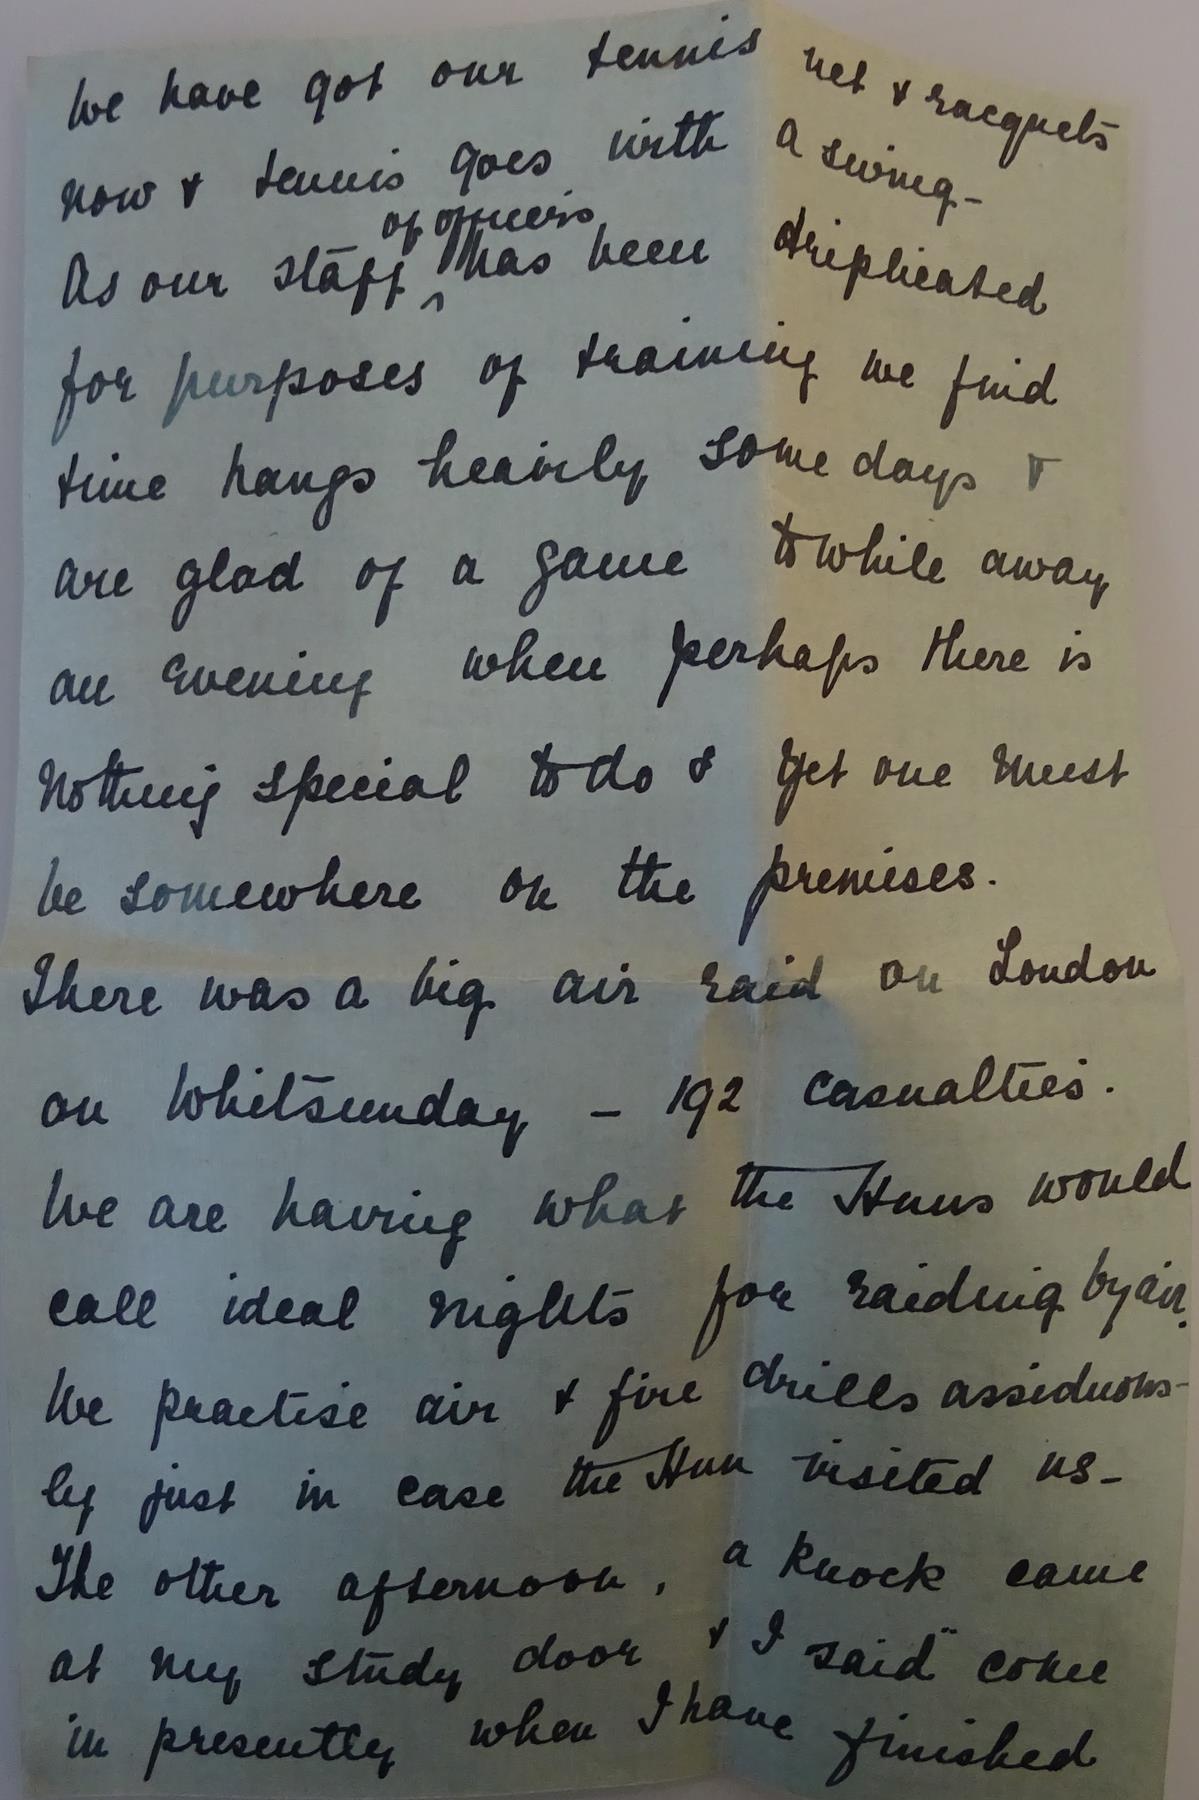 We have got our tennis net & racquets
now & tennis goes with a swing-
of officers
As our staff ^ has been triplicated
for purposes of training we find
time hangs heavily some days &
are glad of a game to while away
an evening when perhaps there is
nothing special to do & yet one must
be somewhere on the premises.
There was a big air raid on London
on Whitsunday – 192 casualties.
We are having what the Huns would
call ideal nights for raiding by air.
We practise air & fire drills assiduous-
ly just in case the Hun visited us-
The other afternoon, a knock came
at my study door & I said "come
in presently when I have finished